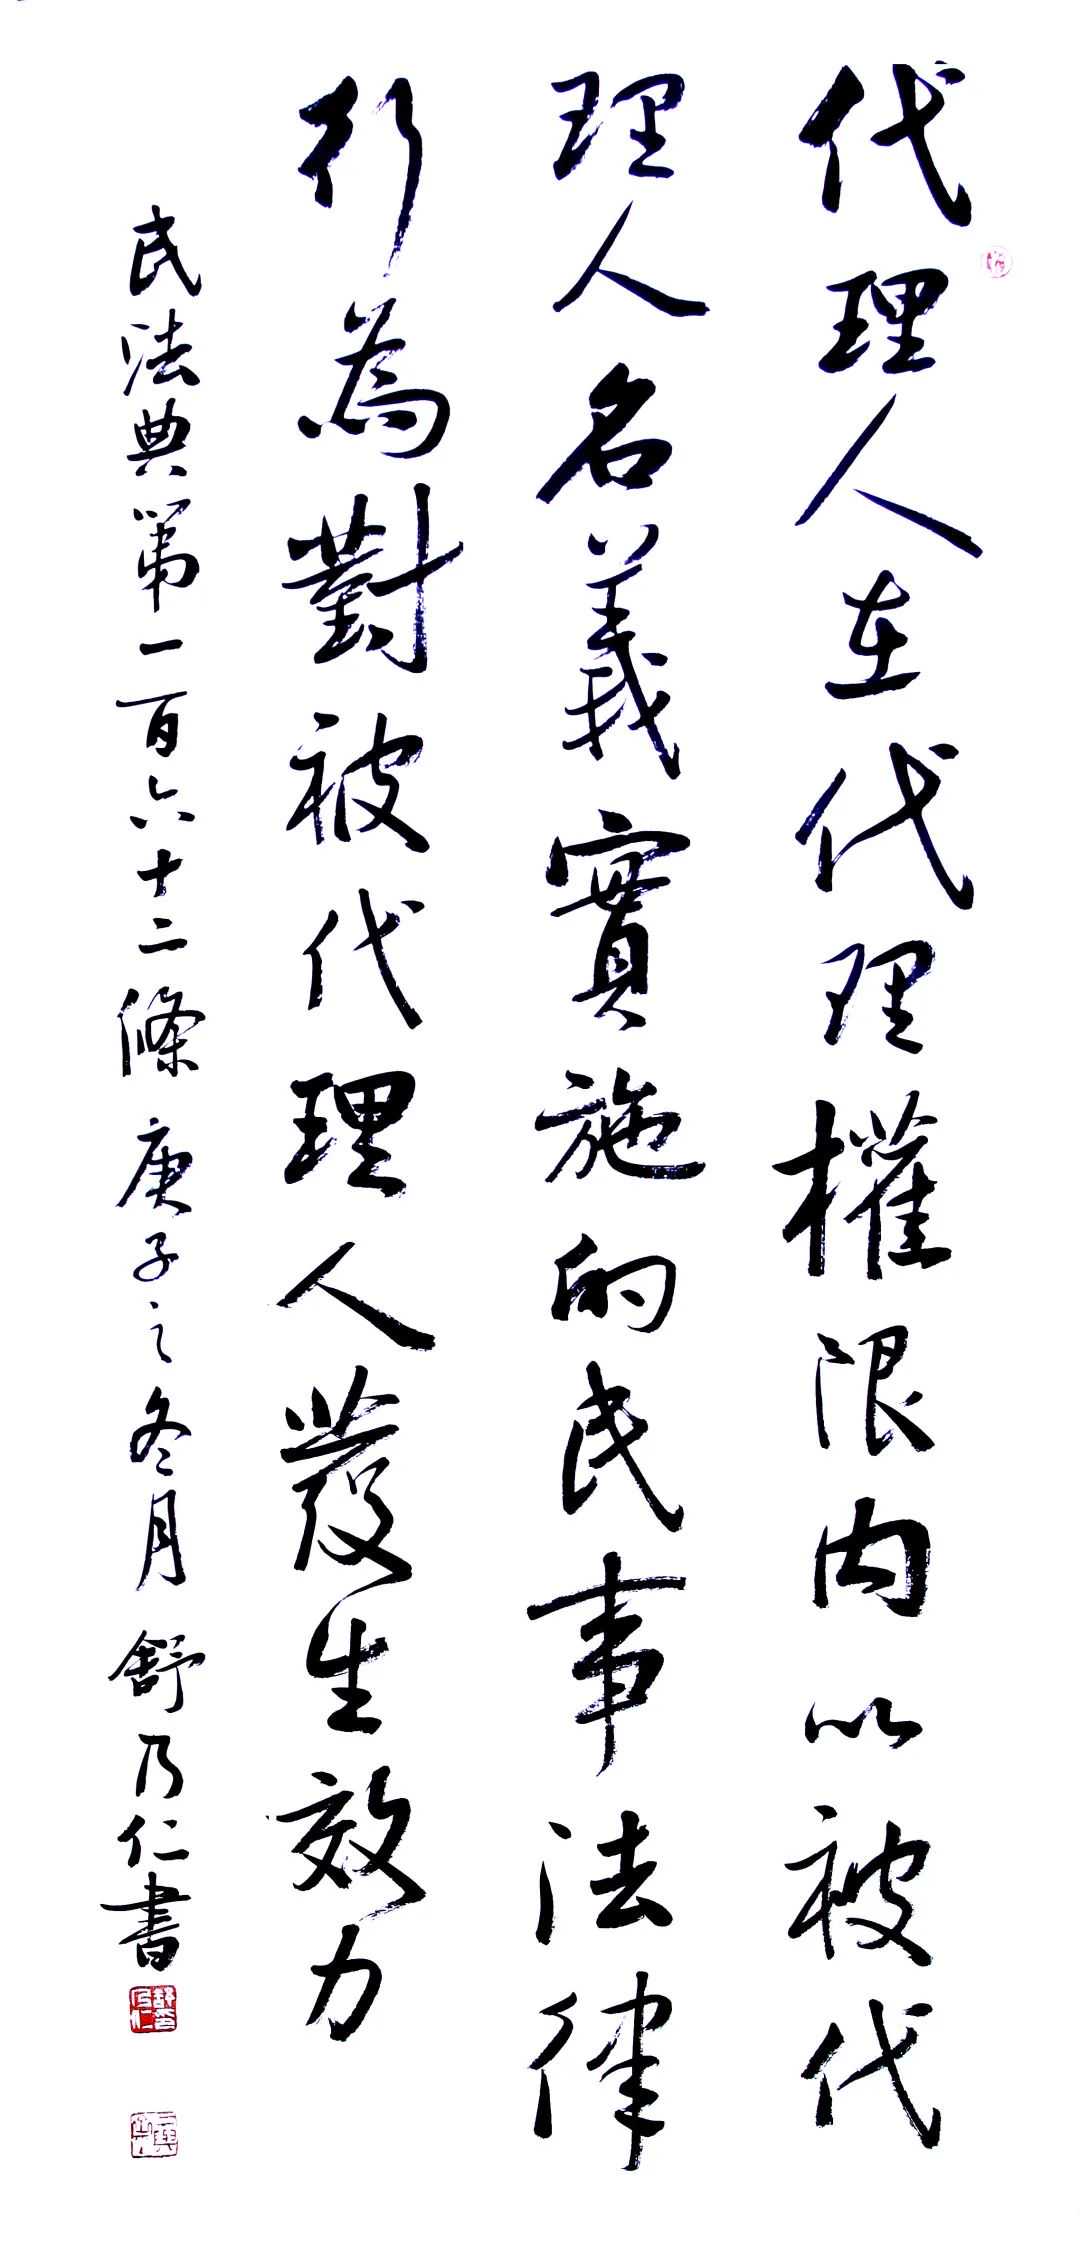 代理人在代理權限内以被代
理人名義實施的民事法律
行為對被代理人發生效力
民法典第一百六十二條 庚子之冬月 舒乃仁書